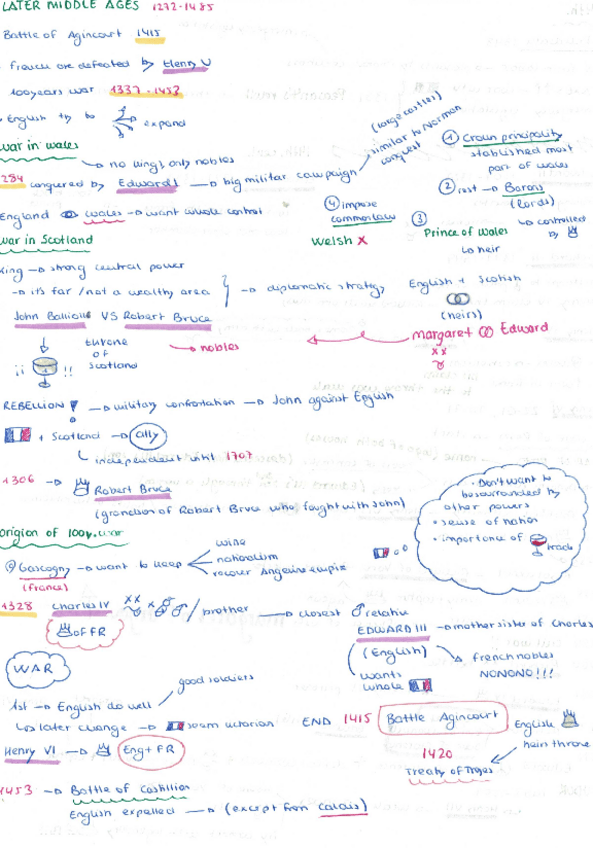 LATER MIDDLE AGES 1272-1485
Battle of Agincourt 1415
French are defeated by Henry V
100 years war 1337-1453
English try to expand
war in wales
no kings, only nobles
1284 conquered by Edward I → big militar campaign
(large castles)
similar to Norman conquest
England wales → want whole control
① Crown principality
stablished most
part of wales
② rest → Barons
(lords)
↳ controlled
by
③
Prince of Wales
↳ heir
④ impose
common law
Welsh X
war in Scotland
King → strong central power
→ it's far / not a wealthy area
→ diplomatic strategy
English + Scotish
(heirs)
Margaret Edward
John Balliol VS Robert Bruce
→ nobles
throne
of
Scotland
¡¡ !!
REBELLION → military confrontation → John against English
+ Scotland → ally
↳ independent until 1707
1306 → Robert Bruce
(grandson of Robert Bruce who fought with John)
· Don't want to
be surrounded by
other powers
· sense of nation
· importance of trade
origion of 100y.war
Gascogny → want to keep
(France)
wine
nationalism
recover Angevine empire
1328 Charles IV / brother → closest ♂ relative
of FR
EDWARD III → mother sister of Charles
(English)
wants
whole
french nobles
NONONO!!!
WAR
1st → English do well
good soldiers
↳ later change → seem victorian
END 1415 Battle Agincourt
English
heir throne
1420
Treaty of Troyes
Henry VI → Eng + FR
1453 → Battle of Castillion
English expelled → (except from Calais)